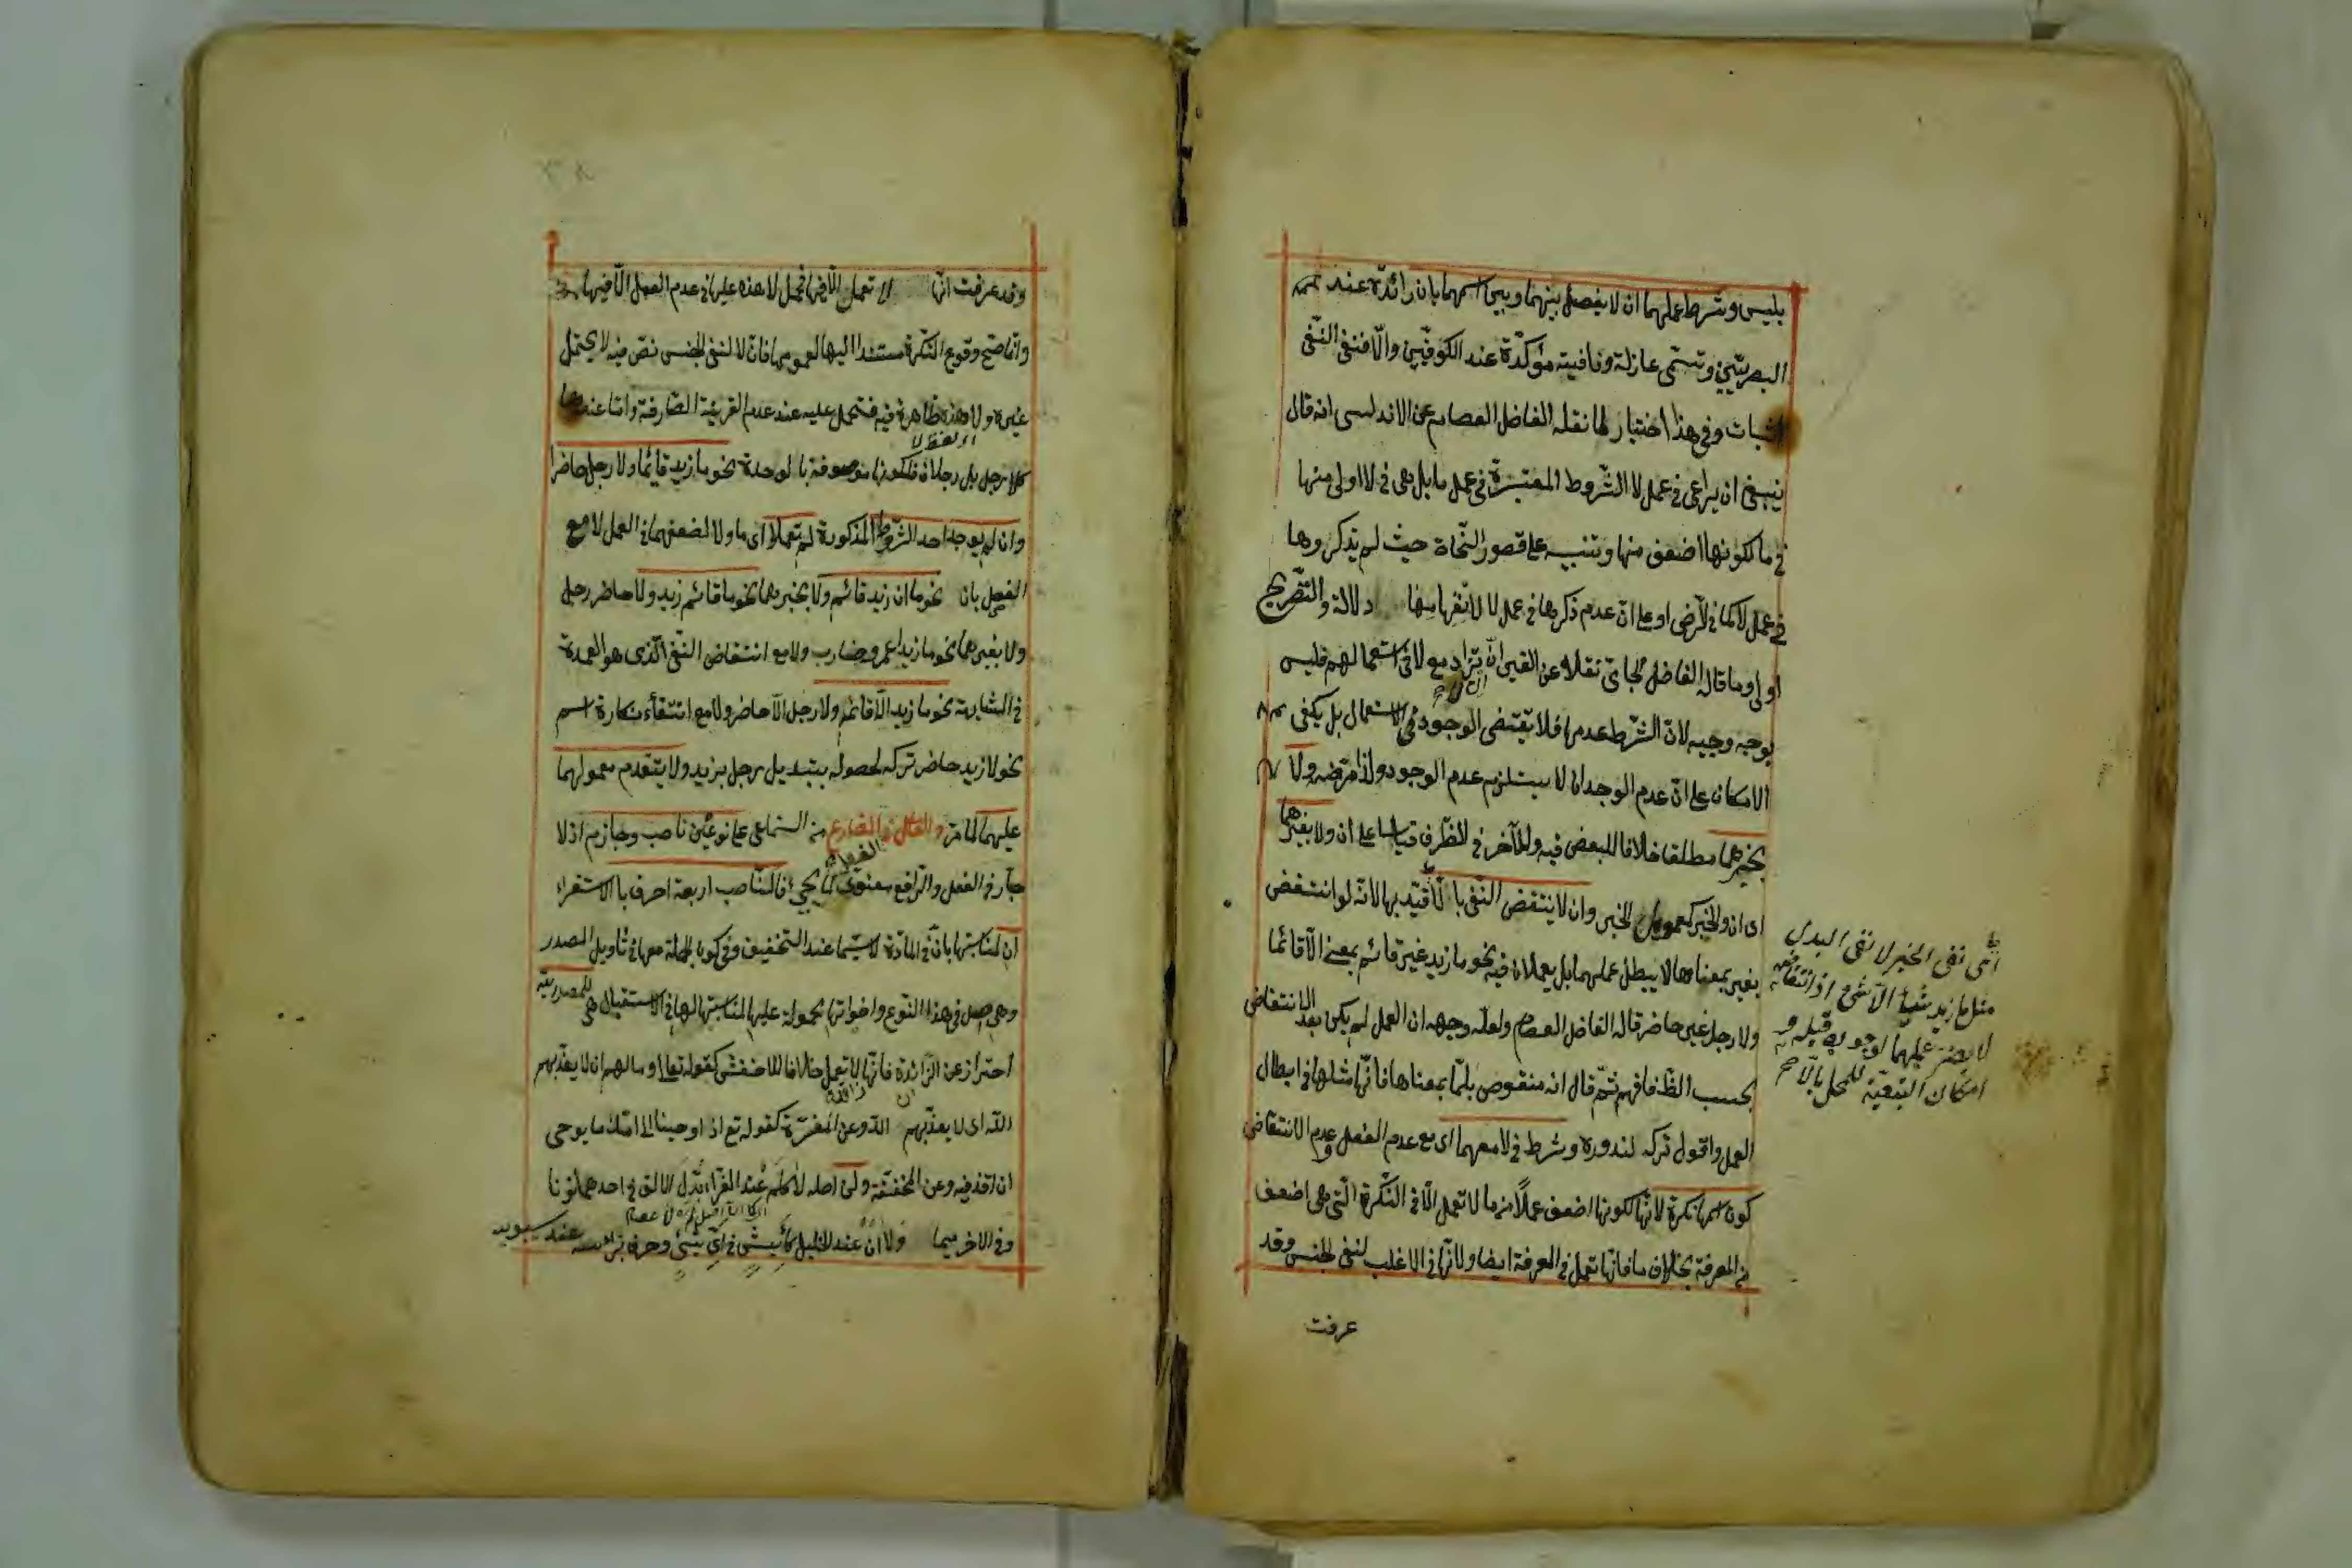 بليس وشرط عملهما ان لا يفصل بينهما وبين اسمهما بان زائدة عند
البصريين وتسمى عازلة ونافية مؤكدة عند الكوفيين والا فنفى النفى
اثبات وفى هذا اختيار لما نقله الفاضل العصام عن الاندلسى انه قال
ينبغى ان يراعى فى عمل لا الشروط المعتبرة فى عمل ما بل هى فى لا اولى منها
فى ما لكونها اضعف منها وتنبيه على قصور النحاة حيث لم يذكروها
فى عمل لا كما فى الرضى او على ان عدم ذكرها فى عمل لا لانفهامها دلالة والتصريح
اولى وما قاله الفاضل الجامى نقلا عن الغير ان تزاد مع لا فى استعمالهم فليس
بوجه وجيه لان الشرط عدمها فلا يقتضى الوجود فى الاستعمال بل يكفى
الامكان على ان عدم الوجدان لا يستلزم عدم الوجود ولذا مرضه ولا
بخبرهما مطلقا خلافا للبعض فيه وللآخر فى الظرف قياسا على ان ولا بغيرهما
اى ان والخبر كمعمول الخبر وان لا ينتقض النفى بالا قيد بها لانه لو انتقض
بغير بمعناها لا يبطل عملهما بل يعملان فيه نحو ما زيد غير قائم بمعنى الا قائما
ولا رجل غير حاضر قاله الفاضل العصام ولعله وجهه ان العمل لم يكن بعد الانتقاض
بحسب الظ فافهم ثم قال انه منقوض بلما بمعناها فانها مثلها فى ابطال
العمل واقول تركه لندوره وشرط فى لا معهما اى مع عدم الفصل وعدم الانتقاض
كون اسمها نكرة لانها لكونها اضعف عملا من ما لا تعمل الا فى النكرة التى هى اضعف
من المعرفة بخلاف ما فانها تعمل فى المعرفة ايضا ولانها فى الاغلب لنفى الجنس وقد
عرفت
اى نفى الخبر لا نفى البدل
مثل ما زيد شيئا الا شئ اذ انتقاضه
لا يضر عملهما لوجوبه قبله و
امكان التبعية للمحل بالا
وقد عرفت انها لا تعمل الا فيها فحمل لا هذه عليها فى عدم العمل الا فيها
وانما صح وقوع النكرة مسندا اليها لعمومها فان لا لنفى الجنس نص فيه لا يحتمل
غيره ولا هذه ظاهرة فيه فتحمل عليه عند عدم القرينة الصارفة واما عندها
كلا رجل بل رجلان فلكونها موصوفة بالوحدة نحو ما زيد قائما ولا رجل حاضرا
وان لم يوجد احد الشروط المذكورة لم تعملا اى ما ولا لضعفهما فى العمل لا مع
الفصل بان نحو ما ان زيد قائم ولا بخبرهما نحو ما قائم زيد ولا حاضر رجل
ولا بغيرهما نحو ما زيدا عمرو ضارب ولا مع انتقاض النفى الذى هو العمدة
فى المشابهة نحو ما زيد الا قائم ولا رجل الا حاضر ولا مع انتفاء نكارة اسم
نحو لا زيد حاضر تركه لحصوله بتبديل رجل بزيد ولا يتقدم معمولهما
عليهما لما مر والعامل فى المضارع من السماعى على نوعين ناصب وجازم اذ لا
جار فى الفعل والرافع معنوى كما يجئ فالناصب اربعة احرف بالاستقراء
ان لمناسبتها بان فى المادة لا سيما عند التخفيف وفى كون الجملة معها فى تأويل المصدر
وهى اصل فى هذا النوع واخواتها محمولة عليها لمناسبتها لها فى الاستقبال هى للمصدرية
احتراز عن الزائدة فانها لا تعمل خلافا للاخفش كقوله تعالى وما لهم ان لا يعذبهم
الله اى لا يعذبهم الله وعن المفسرة كقوله تع اذ اوحينا الى امك ما يوحى
ان اقذفيه وعن المخففة ولن اصله لا كلم عند الفراء بدل الالف فى احدهما نونا
وفى الاخر ميما ولا ان عند الخليل كأيش فى اى شئ وحرف برأسه عند سيبويه